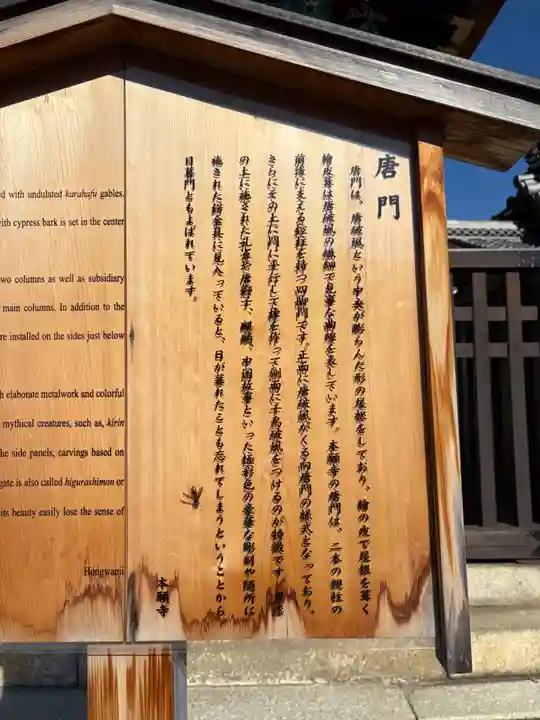 唐門
唐門は、唐破風という中央が膨らんだ形の屋根をしており、檜の皮で屋根を葺く
檜皮葺は唐破風の繊細で見事な曲線を表しています。本願寺の唐門は、二本の親柱の
前後に支える控柱を持つ四脚門です。正面に唐破風がくる向唐門の様式となっており、
さらにその上に同じ平行して棟を作って側面に千鳥破風をつけるのが特徴です。
の上に施された孔雀や唐獅子、麒麟、中国故事といった極彩色の豪華な彫刻や随所に
施された錺金具に見入っていると、日が暮れたことも忘れてしまうということから
日暮門ともよばれています。
本願寺
ed with undulated karahafu gables.
with cypress bark is set in the center
two columns as well as subsidiary
main columns. In addition to the
re installed on the sides just below
h elaborate metalwork and colorful
mythical creatures, such as, kirin
he side panels, carvings based on
gate is also called higurashimon or
its beauty easily lose the sense of
Hongwanji